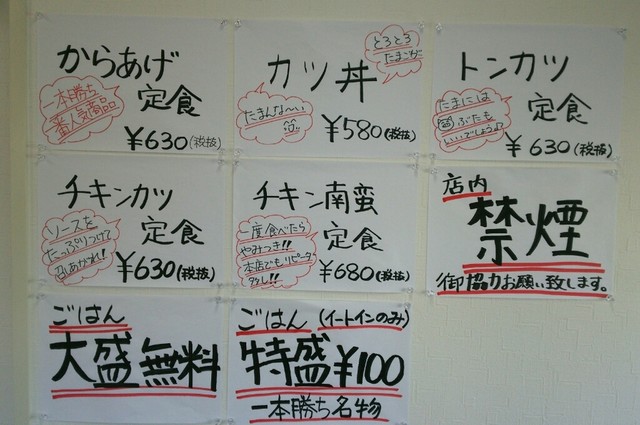 からあげ
定食
一本勝ち
一番人気商品
¥630(税抜)
カツ丼
とろとろ
たまごが
たまんな〜い
¥580(税抜)
トンカツ
定食
たまには
ぶたも
いいでしょう?
¥630(税抜)
チキンカツ
定食
ソースを
たっぷりつけて
召しあがれ!
¥630(税抜)
チキン南蛮
定食
一度食べたら
やみつき!!
本店でもリピーター
多し!!
¥680(税抜)
店内
禁煙
御協力お願い致します。
ごはん
大盛無料
ごはん(イートインのみ)
特盛¥100
一本勝ち名物